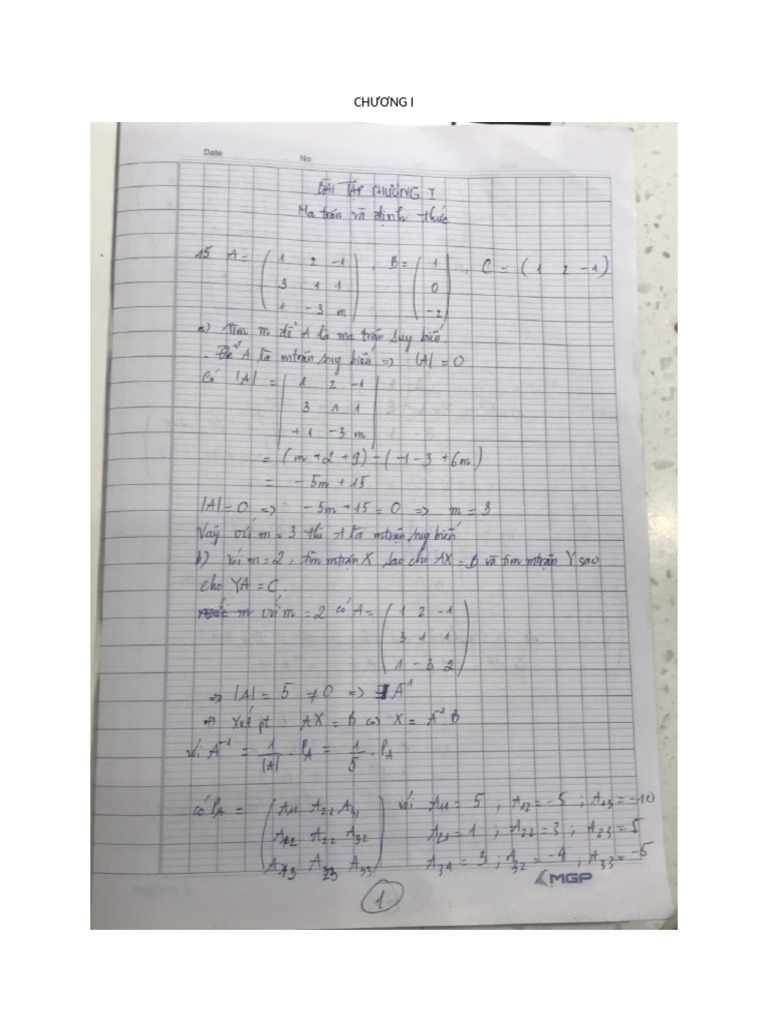 CHƯƠNG I
Date No
BÀI TẬP CHƯƠNG I
Ma trận và định thức
15 A = ( 1 2 -1 ) , B = ( 1 ) , C = ( 1 2 -1 )
3 1 1 0
1 -3 m -2
a) Tìm m để A là ma trận suy biến
. Để A là mtrận suy biến => |A| = 0
Có |A| = | 1 2 -1 |
3 1 1
+1 -3 m
= (m + 2 + 9) - (-1 - 3 + 6m)
= -5m + 15
|A| = 0 => -5m + 15 = 0 => m = 3
Vậy với m = 3 thì A là mtrận suy biến
b) với m = 2, tìm mtrận X sao cho AX = B và tìm mtrận Y sao
cho YA = C.
m với m = 2 có A = ( 1 2 -1 )
3 1 1
1 -3 2
=> |A| = 5 ≠ 0 => ∃ A⁻¹
=> Xét pt AX = B <=> X = A⁻¹ B
với A⁻¹ = 1/|A| . PA = 1/5 . PA
có PA = ( A11 A21 A31 ) với A11 = 5 ; A12 = -5 ; A13 = -10
A12 A22 A32 A21 = 1 ; A22 = 3 ; A23 = 5
A13 A23 A33 A31 = 3 ; A32 = -4 ; A33 = -5
MGP
1